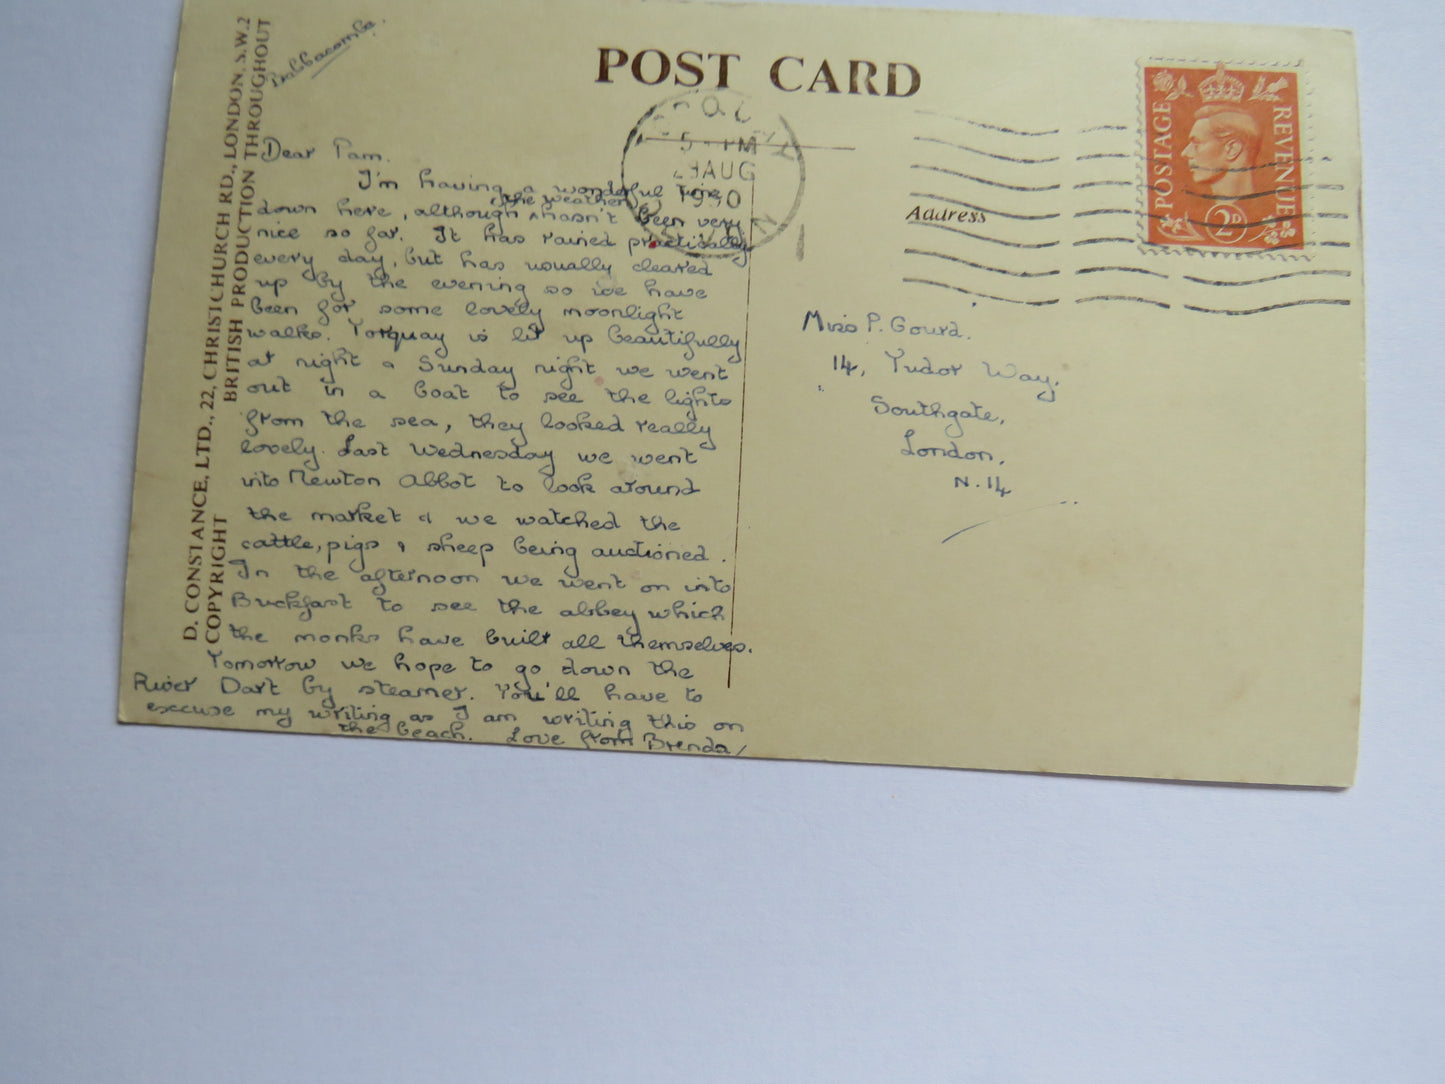 POST CARD
D. CONSTANCE, LTD., 22, CHRISTCHURCH RD., LONDON, S.W.2
COPYRIGHT BRITISH PRODUCTION THROUGHOUT
Babbacombe.
Dear Pam.
I'm having a wonderful time
down here, although the weather hasn't been very
nice so far. It has rained practically
every day, but has usually cleared
up by the evening so we have
been for some lovely moonlight
walks. Torquay is lit up beautifully
at night & Sunday night we went
out in a boat to see the lights
from the sea, they looked really
lovely. Last Wednesday we went
into Newton Abbot to look around
the market & we watched the
cattle, pigs & sheep being auctioned.
In the afternoon we went on into
Buckfast to see the abbey which
the monks have built all themselves.
Tomorrow we hope to go down the
River Dart by steamer. You'll have to
excuse my writing as I am writing this on
the beach. Love from Brenda
PM
AUG
1950
POSTAGE
REVENUE
2D
Address
Miss P. Gourd.
14, Tudor Way,
Southgate,
London,
N.14